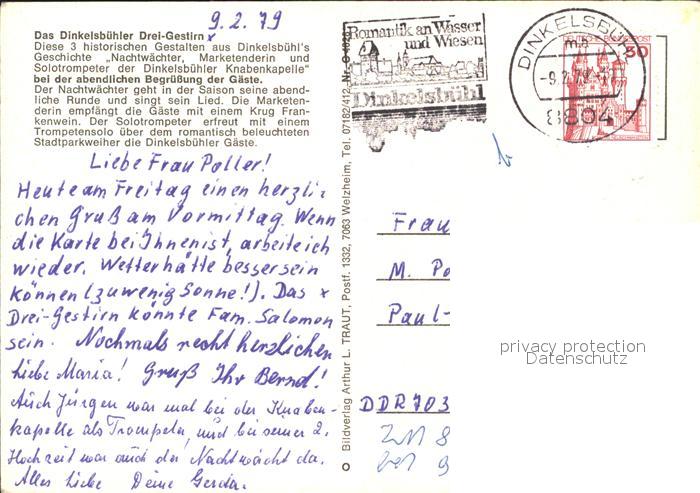 9.2.79
Das Dinkelsbühler Drei-Gestirn x
Diese 3 historischen Gestalten aus Dinkelsbühl's
Geschichte „Nachtwächter, Marketenderin und
Solotrompeter der Dinkelsbühler Knabenkapelle"
bei der abendlichen Begrüßung der Gäste.
Der Nachtwächter geht in der Saison seine abend-
liche Runde und singt sein Lied. Die Marketen-
derin empfängt die Gäste mit einem Krug Fran-
kenwein. Der Solotrompeter erfreut mit einem
Trompetensolo über dem romantisch beleuchteten
Stadtparkweiher die Dinkelsbühler Gäste.
Liebe Frau Poller!
Heute am Freitag einen herzli-
chen Gruß am Vormittag. Wenn
die Karte bei Ihnen ist, arbeite ich
wieder. Wetter hätte besser sein
können (zu wenig Sonne!). Das x
Drei-Gestirn könnte Fam. Salomon
sein. Nochmals recht herzlichen
Liebe Maria! Gruß Ihr Bernd!
Auch Jürgen war mal bei der Knaben-
kapelle als Trompeter, und bei seiner 2.
Hochzeit war auch der Nachtwächt da.
Alles Liebe Deine Gerda.
Bildverlag Arthur L. TRAUT, Postf. 1332, 7063 Welzheim, Tel. 07182/412
Romantik an Wasser
und Wiesen
Dinkelsbühl
DINKELSBÜHL
-9.2.79
8804
DEUTSCHE BUNDESPOST
50
Frau
M. Po
Paul-
DDR 703
privacy protection
Datenschutz